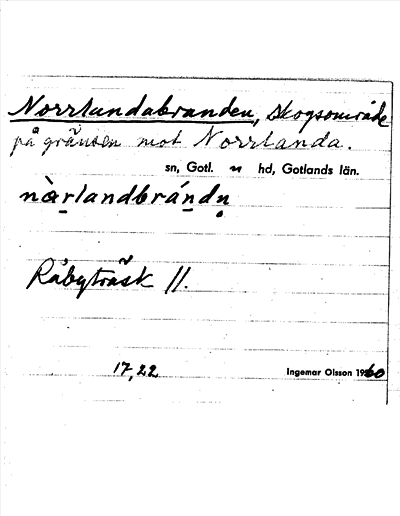 Norrlandabranden, skogsområde
på gränsen mot Norrlanda.
sn, Gotl. n hd, Gotlands län.
nàr̠landbrán̠dn̥
Råbyträsk //.
17,22
Ingemar Olsson 1960